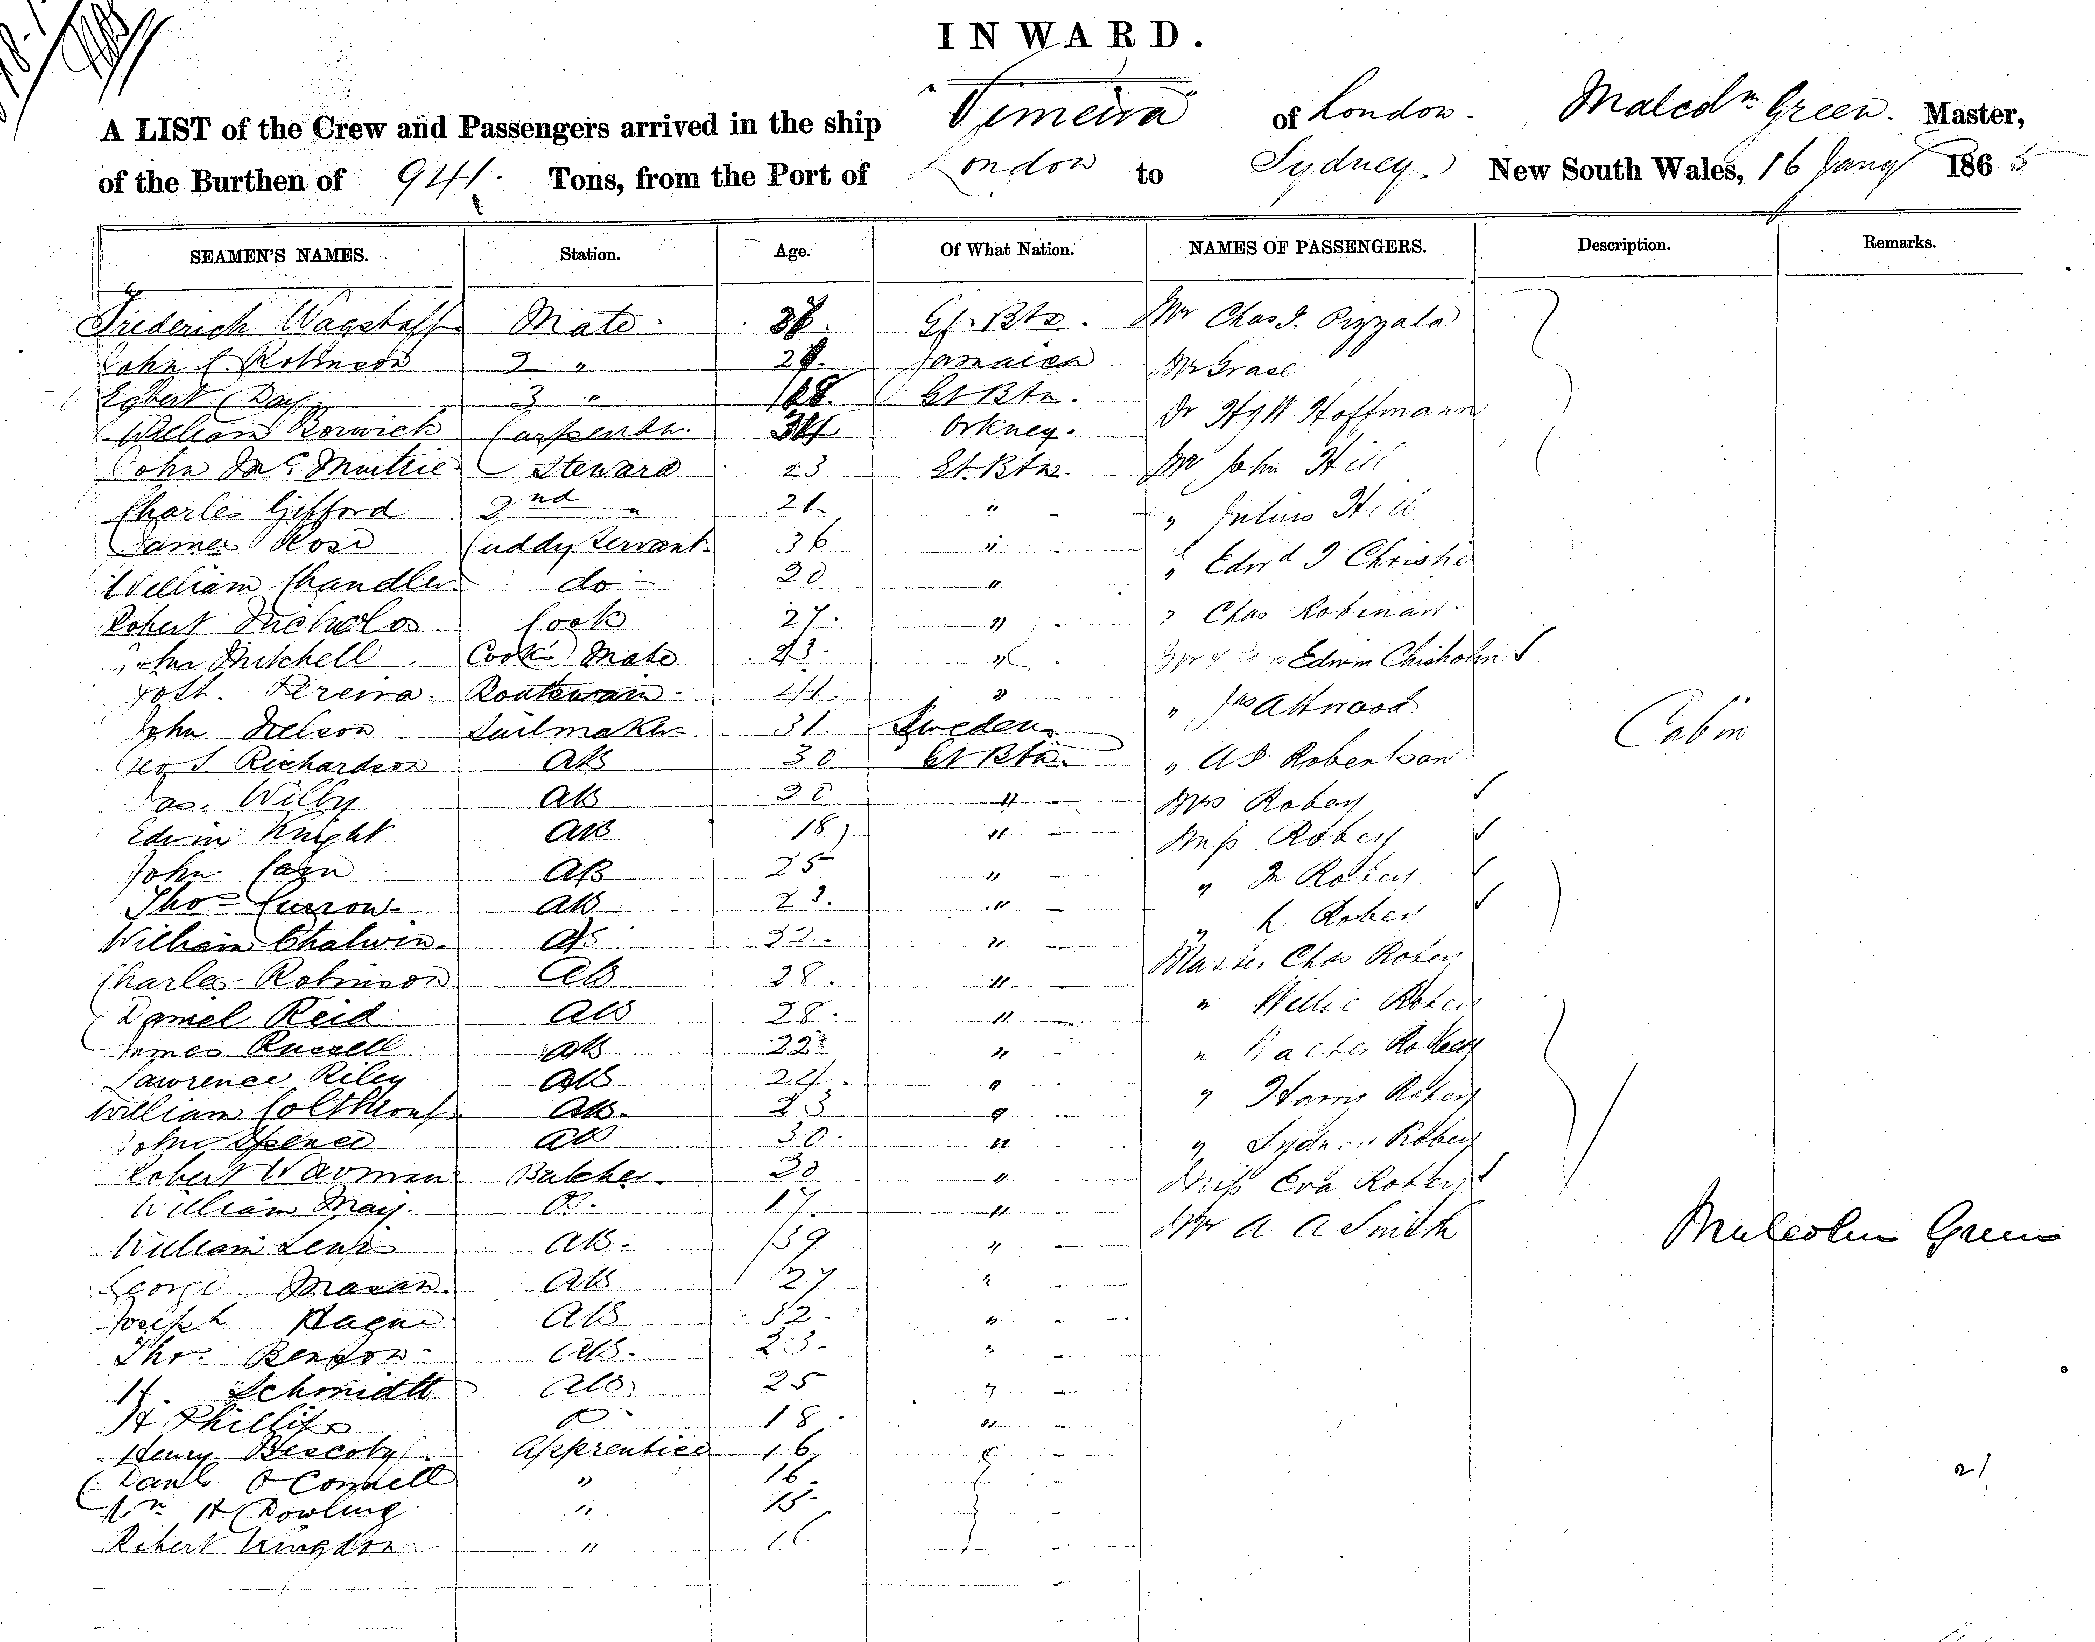 INWARD.
A LIST of the Crew and Passengers arrived in the ship "Vimeira" of London. Malcolm Green. Master,
of the Burthen of 941. Tons, from the Port of London to Sydney. New South Wales, 16 Jany 1865
SEAMEN'S NAMES. Station. Age. Of What Nation. NAMES OF PASSENGERS. Description. Remarks.
Frederick Wagstaff Mate. Gt. Btn. Mr Chas J. Pizzala
John C. Robinson 2 " Jamaica Mr Grace
Egbert Day 3 " 18. Gt Btn. Dr Hoffmann
William Borwick Carpenter. Orkney.
John Steward 23 Gt. Btn. Mr John Hill
Charles Gifford 2nd " 21 " " Julius Hill
James Rose Cuddy Servant. 36 " " Edwd J Christie
William Chandler do 20 "
Robert Nicholas Cook 27. " " Chas Robinson
John Mitchell Cooks Mate 23. " Edwin Chisholm
Pereira. Boatswain. 44. " " Jas Attwood
John Nelson Sailmaker 31. Sweden. Cabin
Geo S Richardson AB 30 Gt Btn. " A D Robertson
Jas. Wilby AB " Mrs Robey
Edwin Knight AB 18 " Miss Robey
John Cain AB 25 " " Robey
Thos Curron AB 23. " " Robey
William Chalwin. AB 22. "
Charles Robinson AB 28. " Master Chas Robey
Daniel Reid AB 28. " " Willie Robey
James Russell AB 22 " " Robey
Lawrence Riley AB 24. " " Harry Robey
William Colthroup AB. 23 "
John Spence AB 30. " " Sydney Robey
Robert Warman Butcher. 20 " Miss Eva Robey
William May. O. 17. " Mr A A Smith Malcolm Green
William AB. 39 "
George Mason. AB 27 "
Joseph Hague AB 32. "
Thos. Benson AB. 23. "
H. Schmidt AB 25 "
H Phillips O 18. "
Henry Bescoby. Apprentice 16
Danl O'Connell " 16. 21
Wm H Dowling " 15.
Robert Kingdon " 16